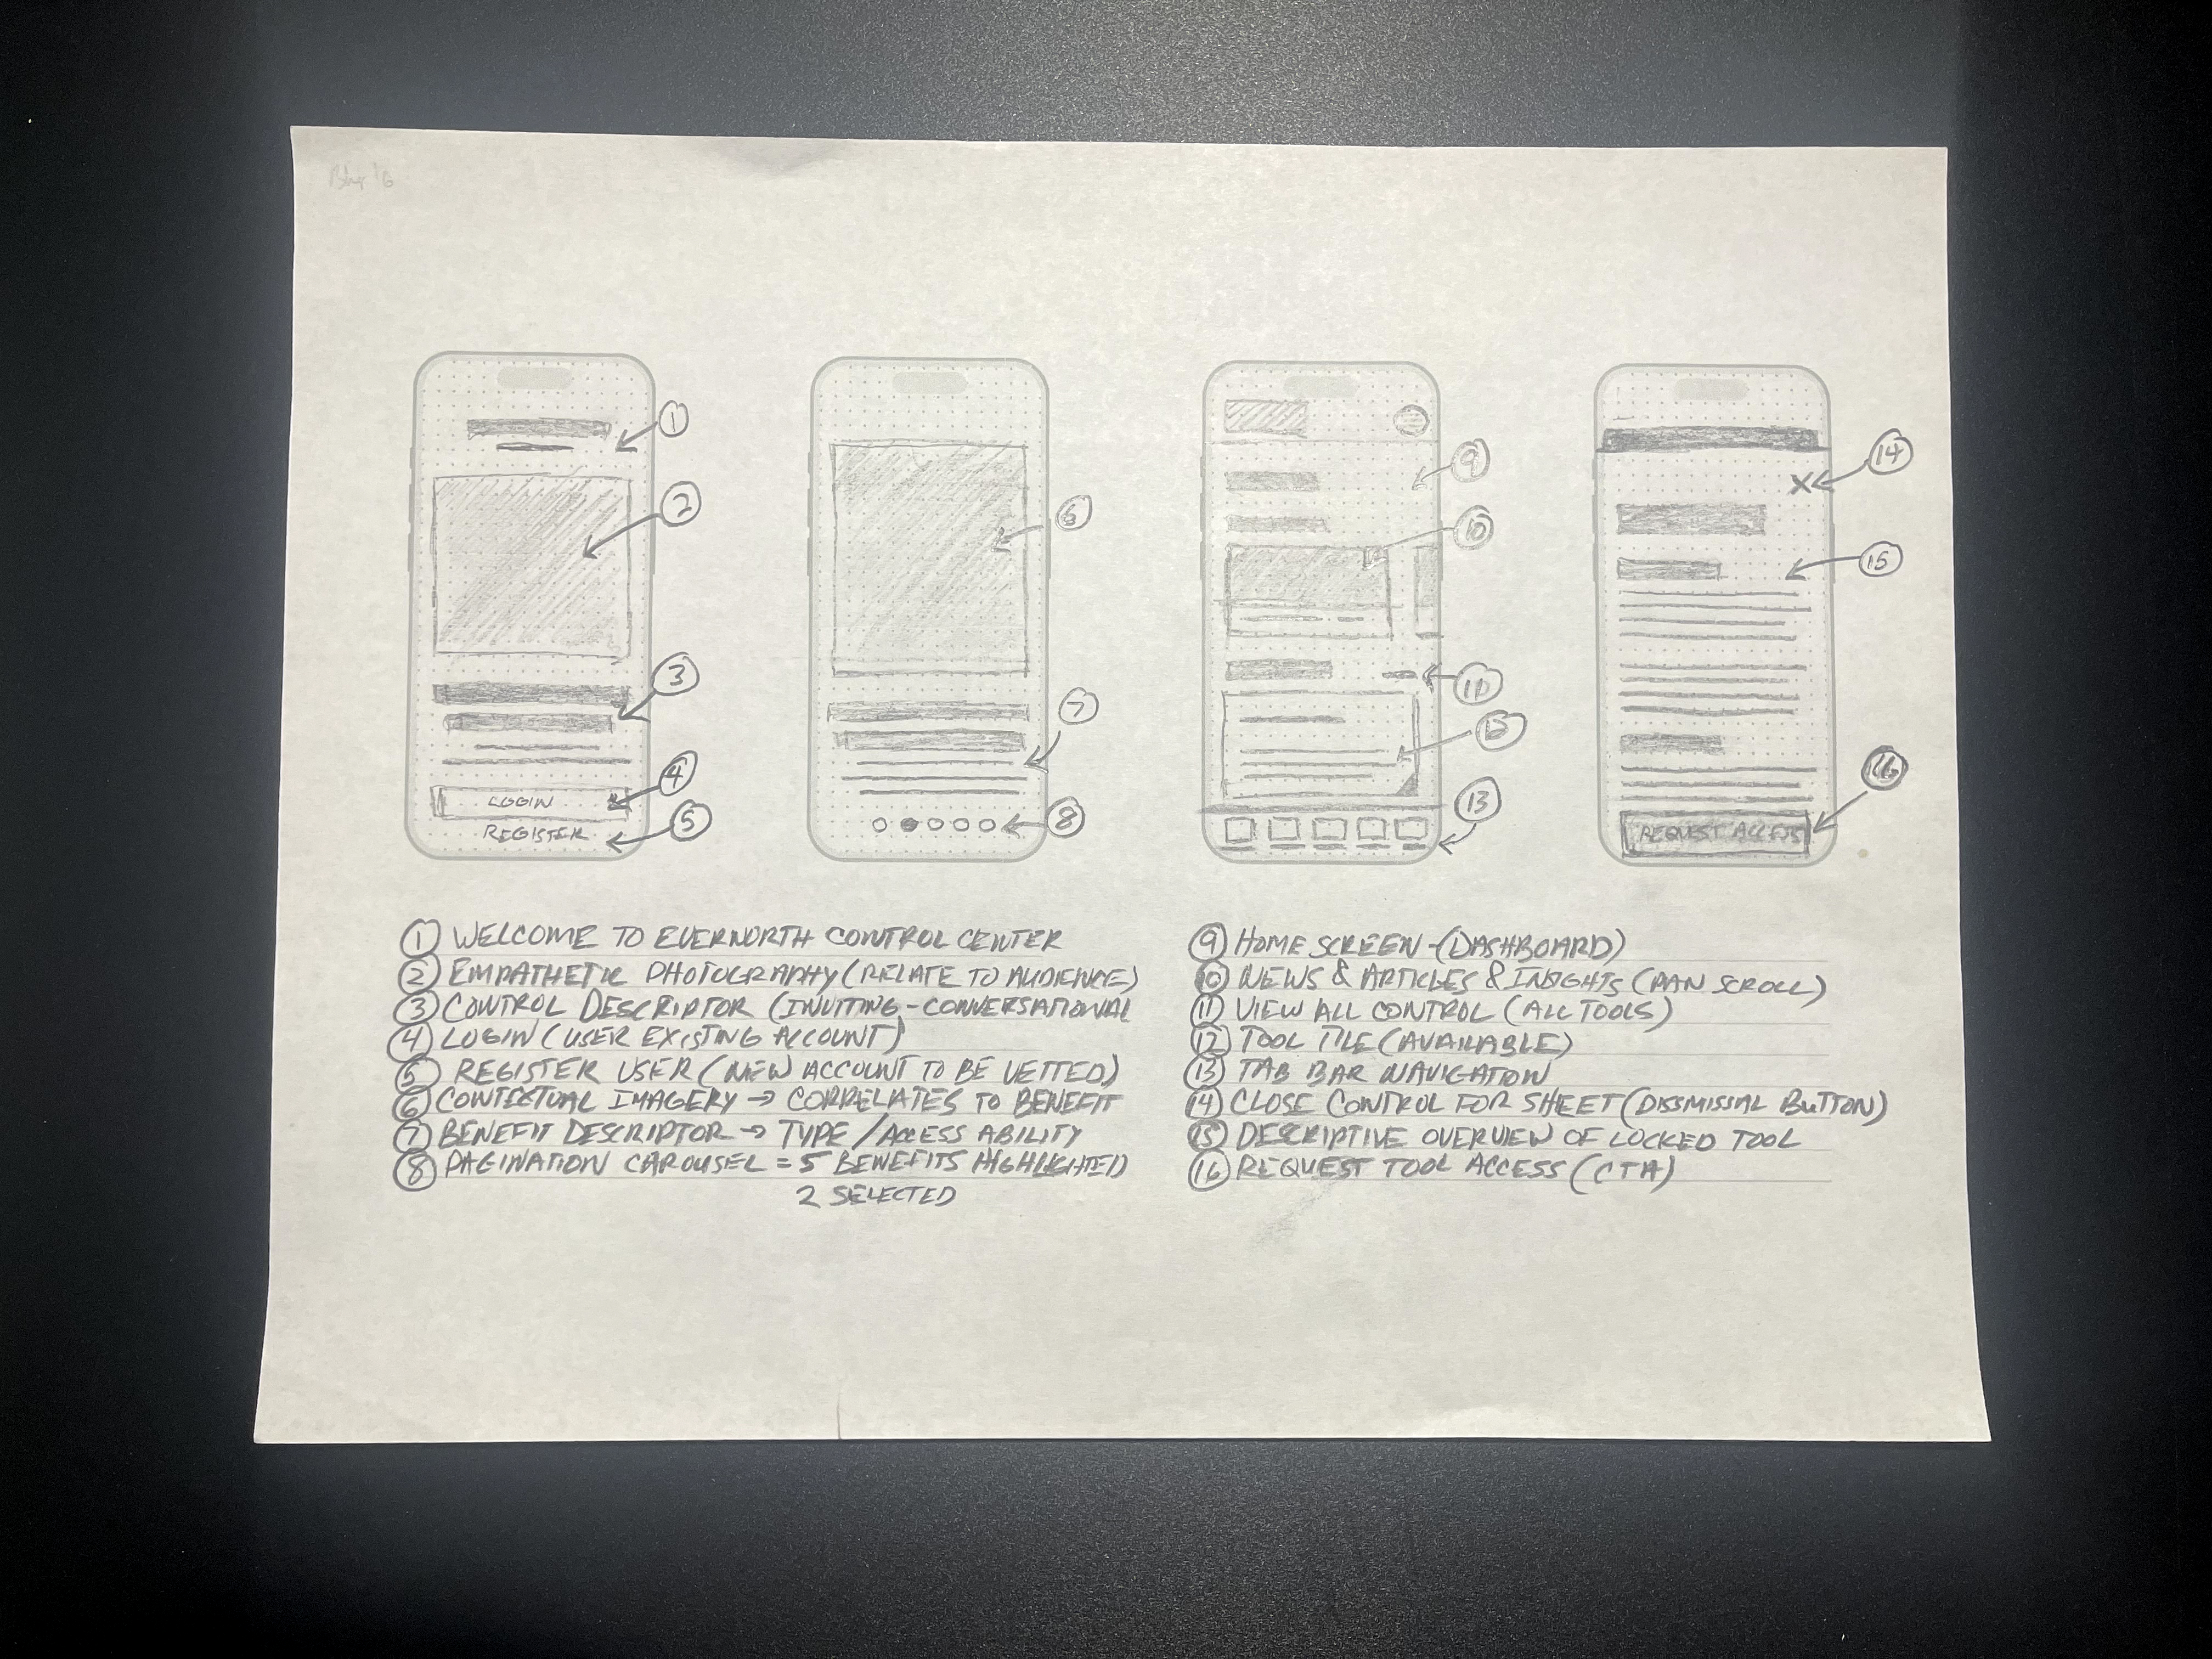 1
2
3
LOGIN
4
REGISTER
5
6
7
8
9
10
11
13
14
15
REQUEST ACCESS
16
1 WELCOME TO EVERNORTH CONTROL CENTER
2 EMPATHETIC PHOTOGRAPHY (RELATE TO AUDIENCE)
3 CONTROL DESCRIPTOR (INVITING-CONVERSATIONAL
4 LOGIN (USER EXISTING ACCOUNT)
5 REGISTER USER (NEW ACCOUNT TO BE VETTED)
6 CONTEXTUAL IMAGERY → CORRELATES TO BENEFIT
7 BENEFIT DESCRIPTOR → TYPE / ACCESS ABILITY
8 PAGINATION CAROUSEL = 5 BENEFITS HIGHLIGHTED
2 SELECTED
9 HOME SCREEN - (DASHBOARD)
10 NEWS & ARTICLES & INSIGHTS (PAN SCROLL)
11 VIEW ALL CONTROL (ALL TOOLS)
12 TOOL TILE (AVAILABLE)
13 TAB BAR NAVIGATION
14 CLOSE CONTROL FOR SHEET (DISSMISSAL BUTTON)
15 DESCRIPTIVE OVERVIEW OF LOCKED TOOL
16 REQUEST TOOL ACCESS (CTA)